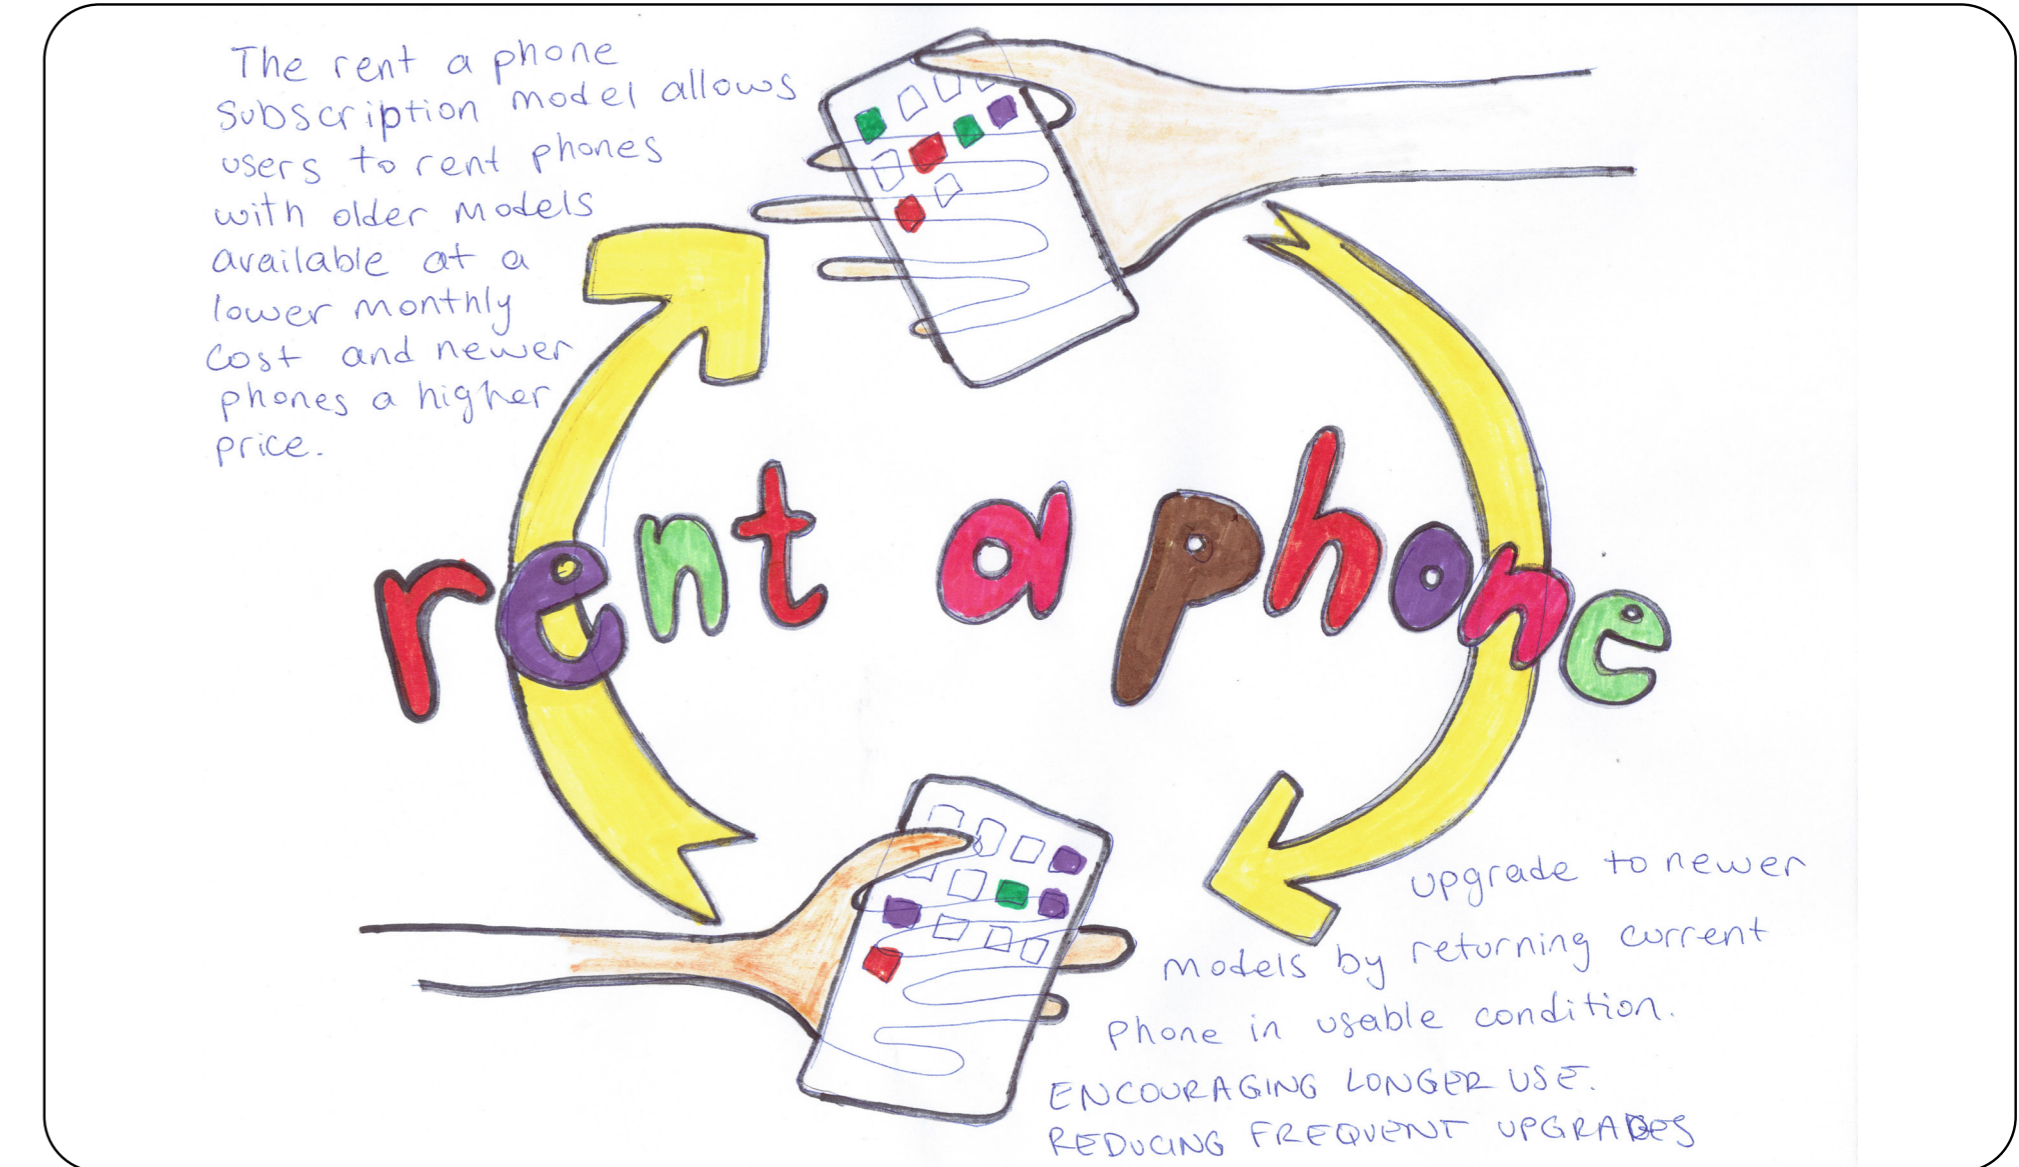 The rent a phone
subscription model allows
users to rent phones
with older models
available at a
lower monthly
cost and newer
phones a higher
price.
rent a phone
upgrade to newer
models by returning current
phone in usable condition.
ENCOURAGING LONGER USE.
REDUCING FREQUENT UPGRADES